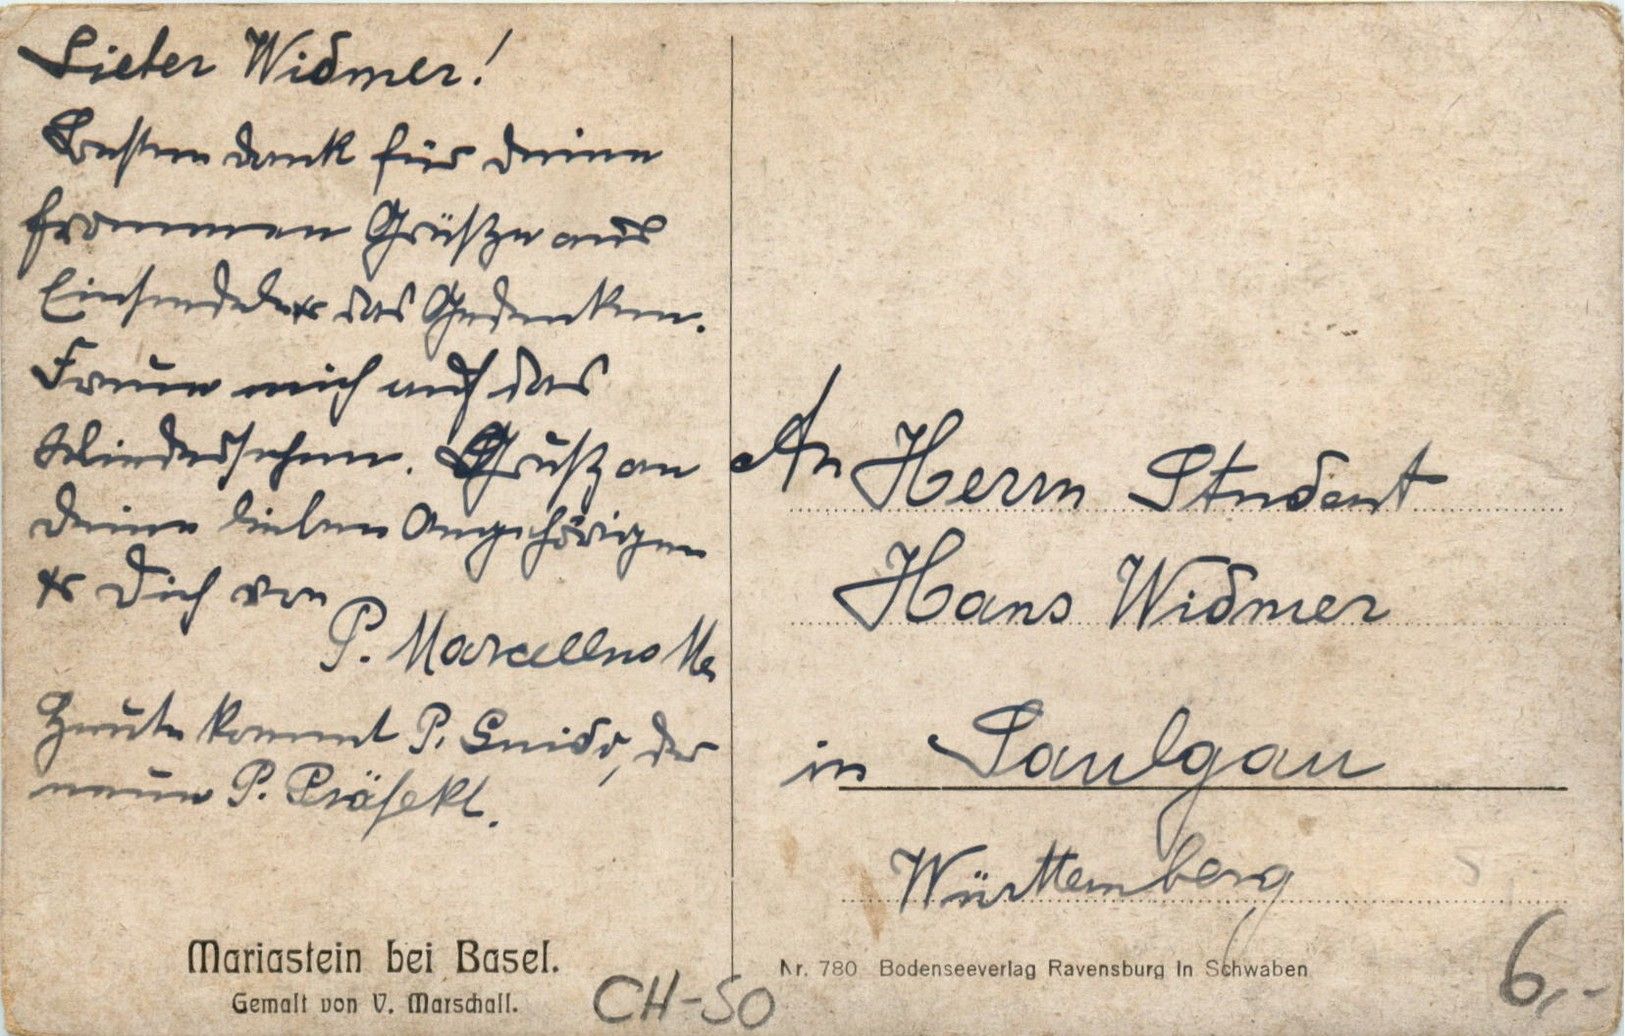 Lieber Widmer!
Besten dank für deine
frommen Grüße aus
Einsiedeln & das Gedenken.
Freue mich auf das
Wiedersehen. Gruß an
deine lieben Angehörigen
& dich von
P. Marcellus
Heute kommt P. Guido, der
neue P. Präfekt.
Mariastein bei Basel.
Gemalt von V. Marschall.
CH-SO
An Herrn Student
Hans Widmer
in Saulgau
Württemberg
Nr. 780 Bodenseeverlag Ravensburg in Schwaben
6,-